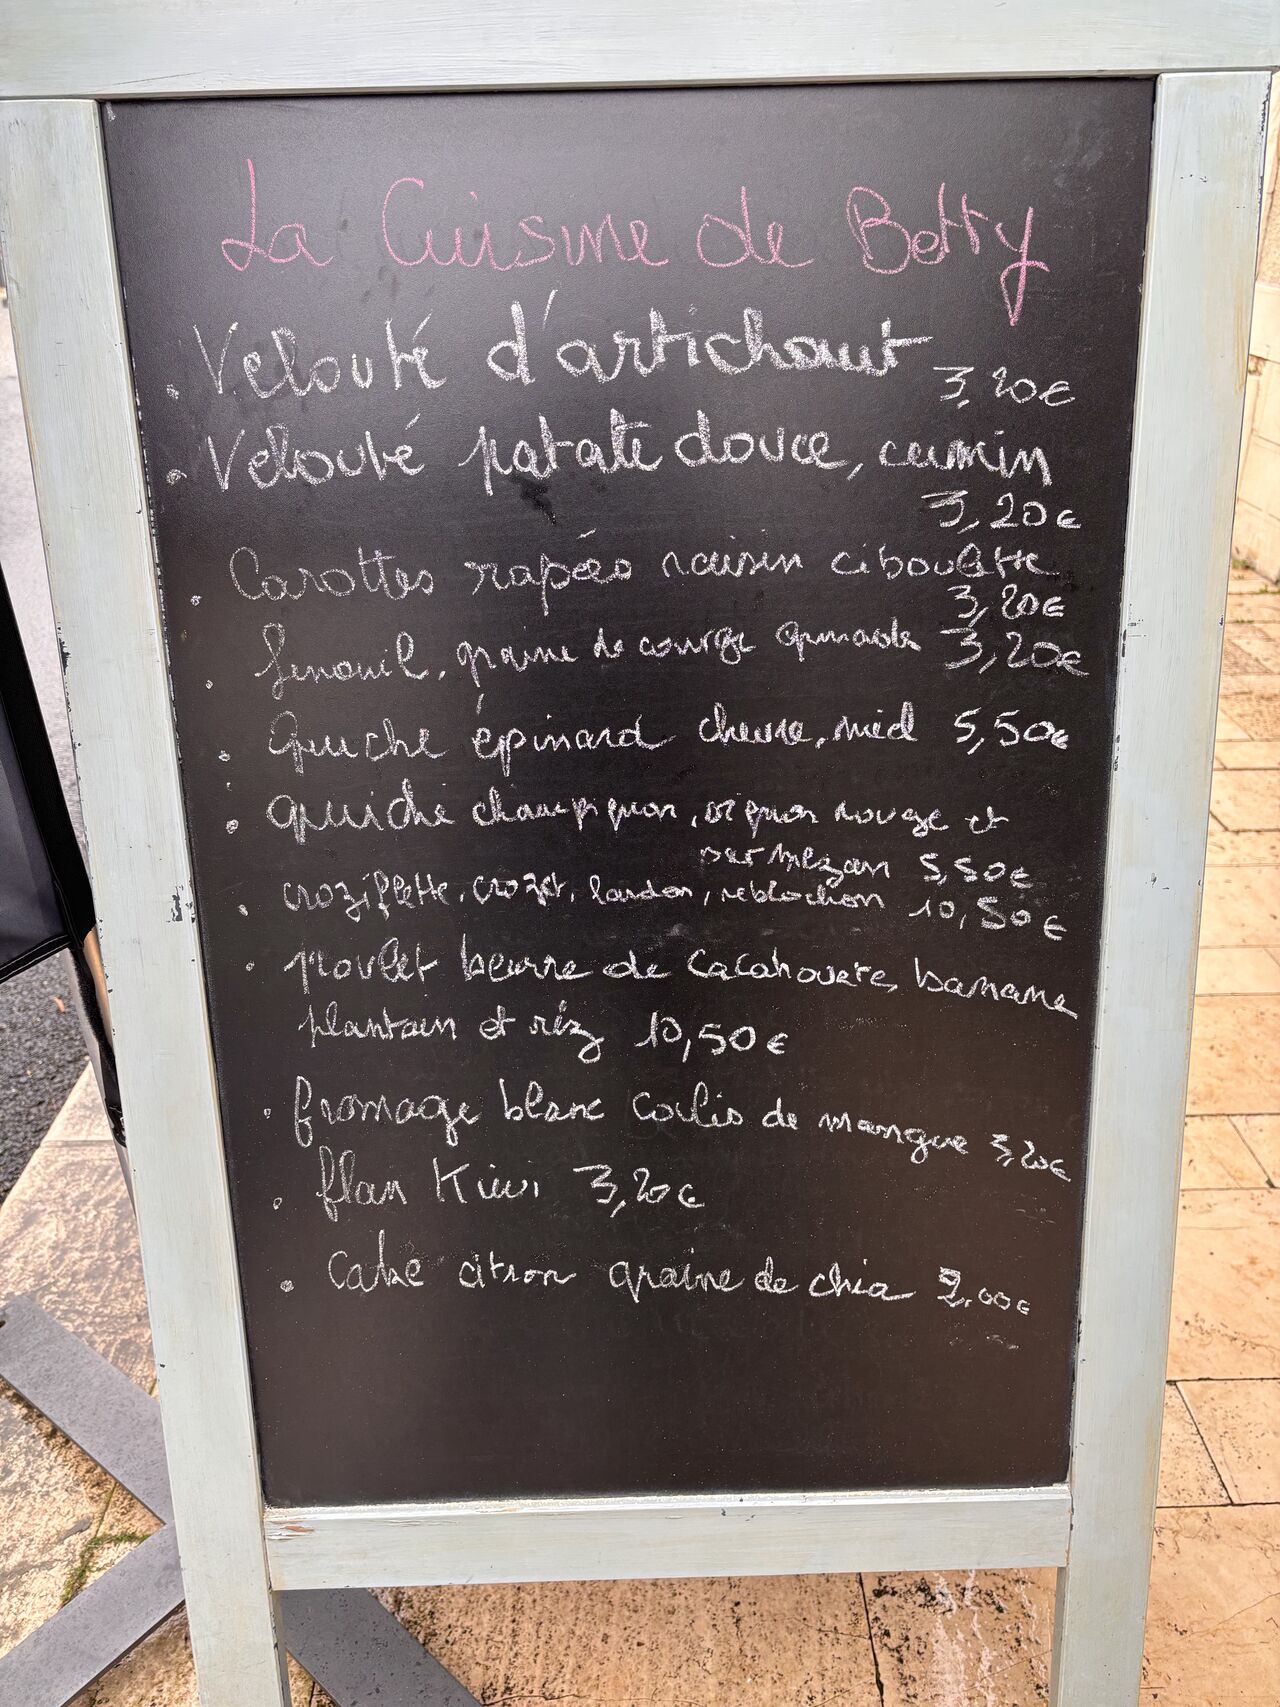 La Cuisine de Betty
. Velouté d'artichaut 3,20€
. Velouté patate douce, cumin
3,20€
. Carottes rapées raisin ciboulette
3,20€
. fenouil, graine de courge grenade 3,20€
. Quiche épinard chevre, miel 5,50€
. quiche champignon, oignon rouge et
parmezan 5,50€
. croziflette, crozet, lardon, reblochon 10,50€
. poulet beurre de cacahouete, banane
plantain et riz 10,50€
. fromage blanc coulis de mangue 3,20€
. flan Kiwi 3,20€
. Cake citron graine de chia 2,00€